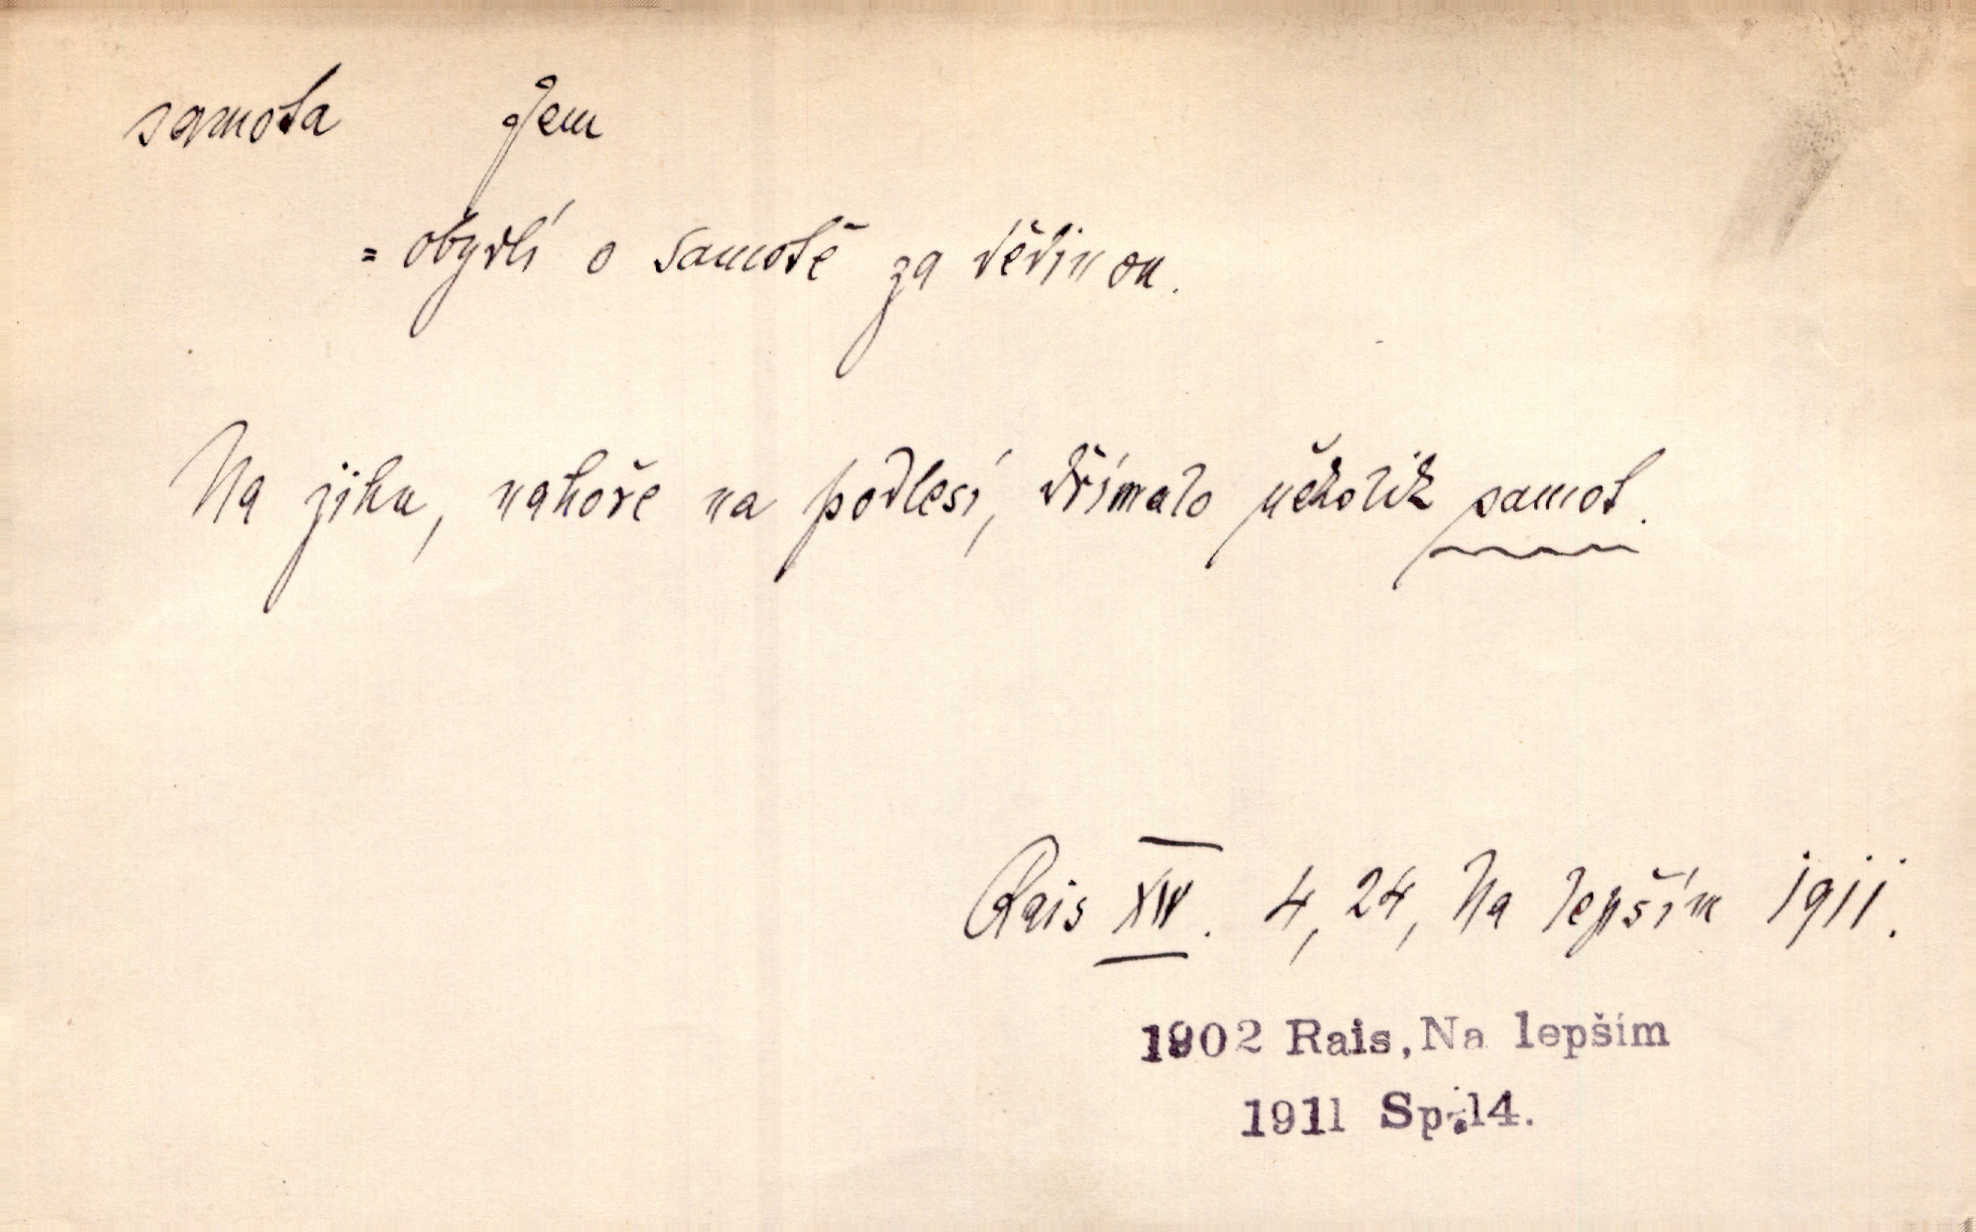 samota fem
= obydlí o samotě za dědinou.
Na jihu, nahoře na podlesí, dřímalo několik samot.
Rais XIV. 4, 24, Na lepším 1911.
1902 Rais, Na lepším
1911 Sp.14.